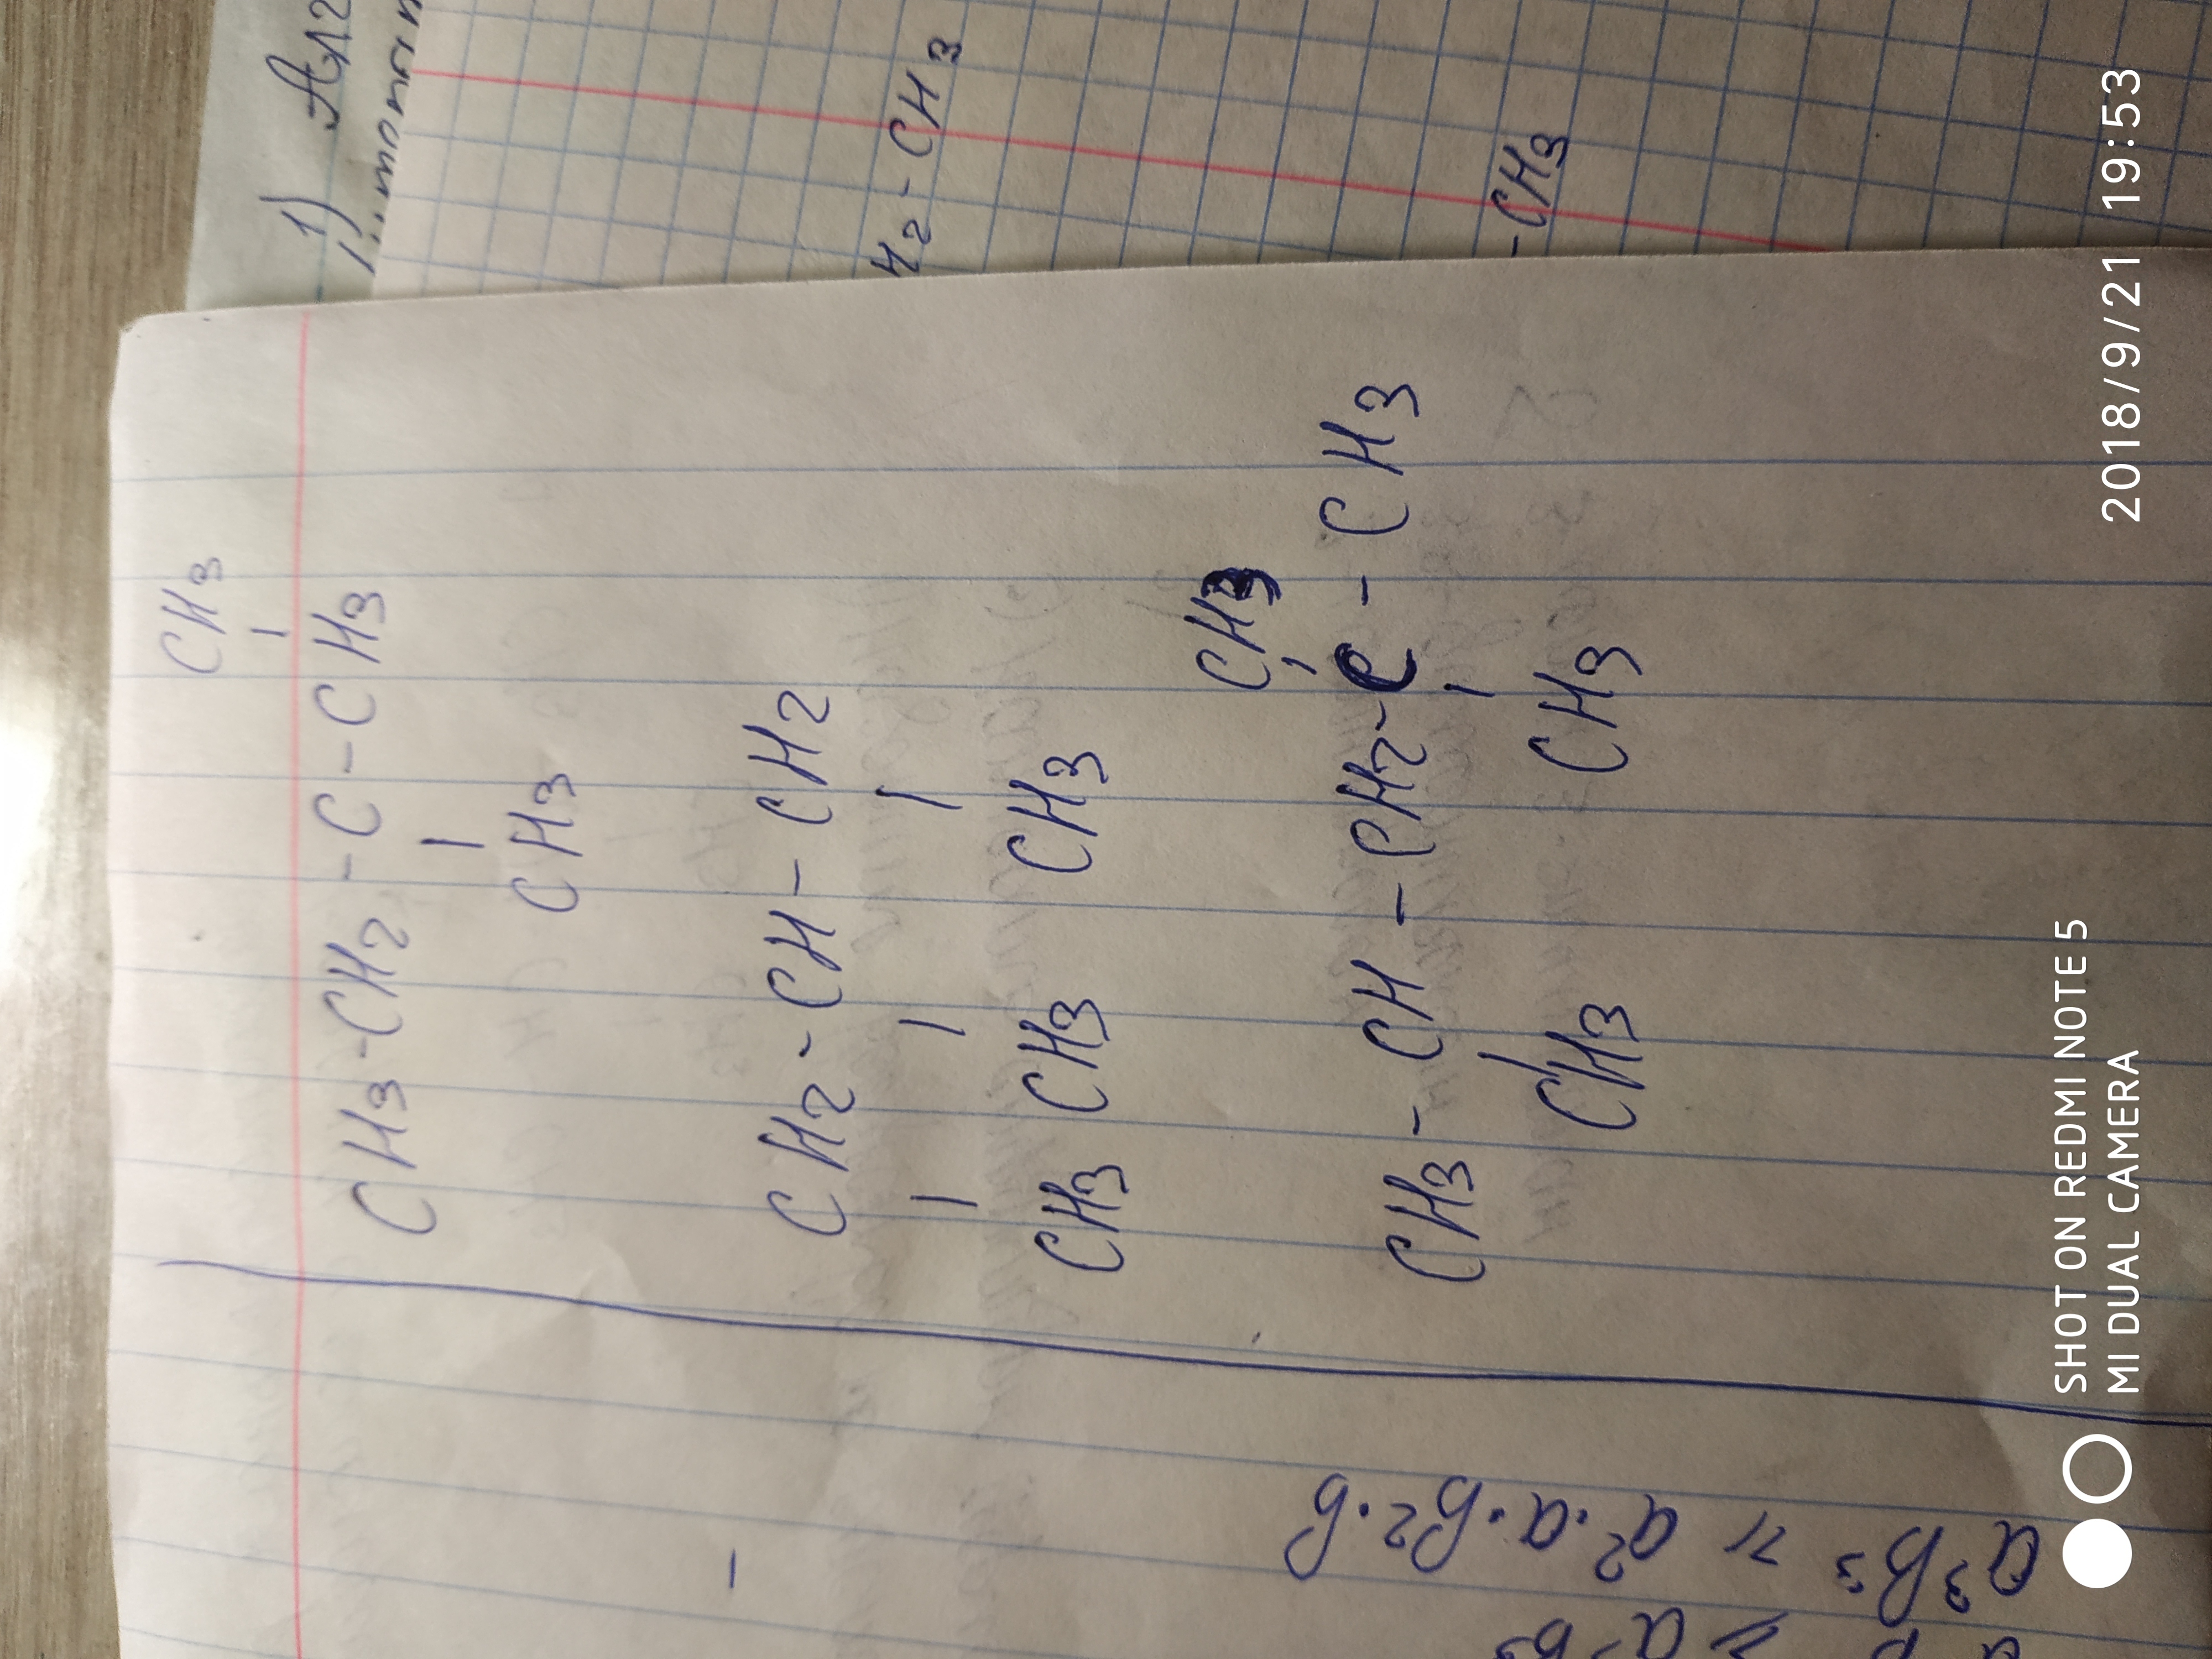 CH3
CH3-CH2-C-CH3
CH3
CH2-CH-CH2
CH3 CH3 CH3
CH3
CH3-CH-CH2-C-CH3
CH3 CH3
1)
H2-CH3
-CH3
SHOT ON REDMI NOTE 5
MI DUAL CAMERA
2018/9/21 19:53